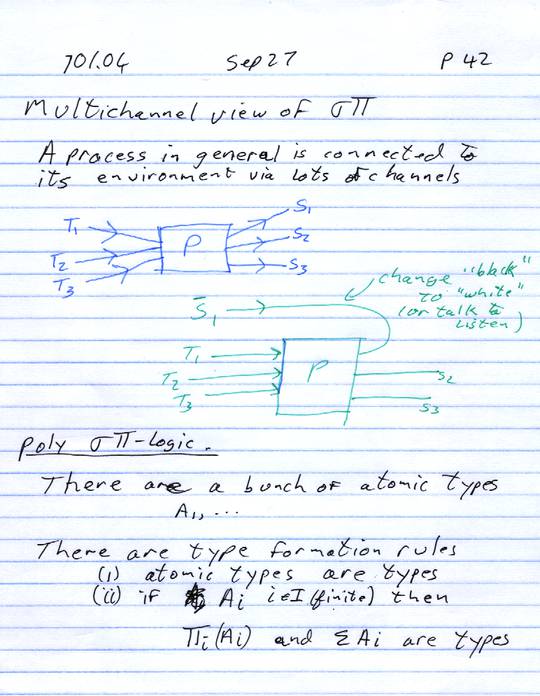 701.04 Sep 27 P 42
Multichannel view of σΠ
A process in general is connected to
its environment via lots of channels
T₁ S₁
P
T₂ S₂
T₃ S₃
change "black"
to "white"
(or talk to
listen)
S̄₁
T₁
P
T₂ S₂
T₃ S₃
poly σΠ-logic.
There are a bunch of atomic types
A₁, ...
There are type formation rules
(i) atomic types are types
(ii) if Aᵢ i∈I (finite) then
Πᵢ(Aᵢ) and ΣAᵢ are types